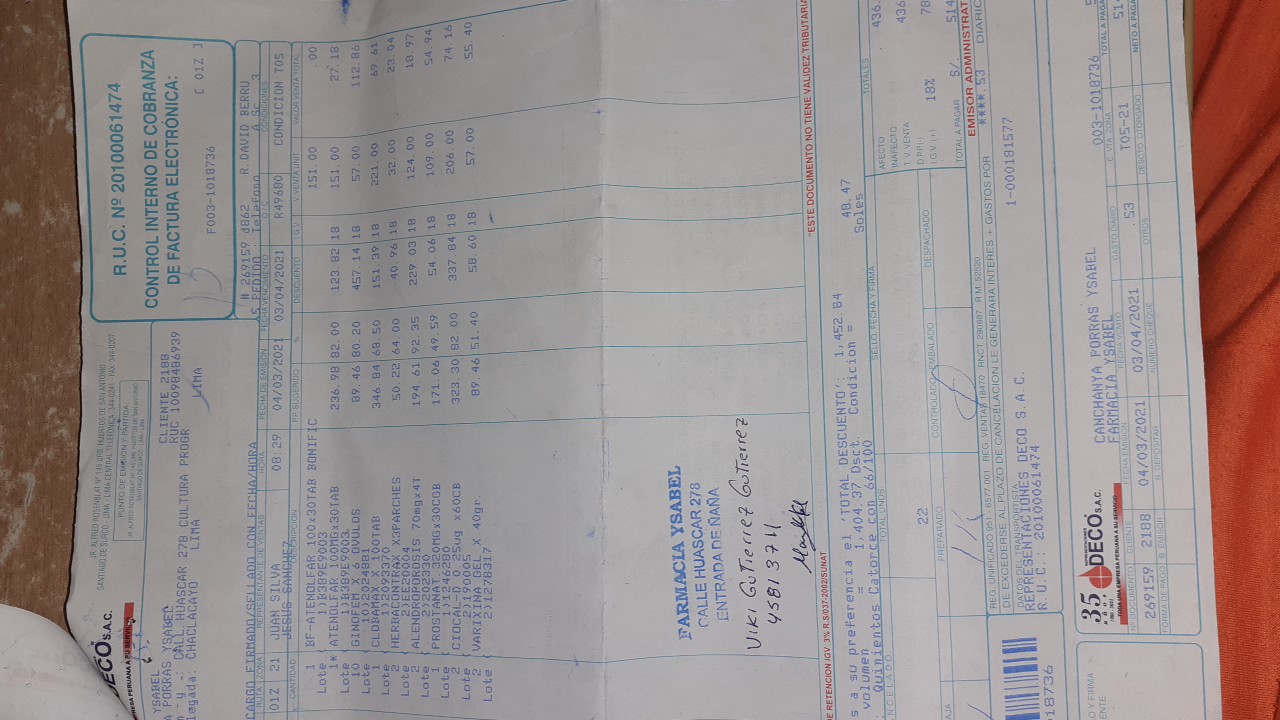 DECO S.A.C.
FORMA UNA EMPRESA PERUANA A SU SERVICIO
JR. ALFRED ROSENBLAT Nº 145 URB. HUERTOS DE SAN ANTONIO
SANTIAGO DE SURCO - LIMA - LIMA CENTRAL TELEFÓNICA
PUNTO DE EMISIÓN Y PARTIDA
R.U.C. Nº 20100061474
CONTROL INTERNO DE COBRANZA
DE FACTURA ELECTRÓNICA:
F003-1018736 [ 01Z ]
YSABEL CLIENTE 2188
A PORRAS YSABEL RUC 10098486939
CALL HUASCAR 278 CULTURA PROGR
llegada: CHACLACAYO LIMA LIMA
# 269159 d862 R.DAVID BERRU
S.PEDIDO: Telefono
CARGO FIRMADO/SELLADO CON FECHA/HORA
RUTA ZONA REPRESENTANTE DE VENTAS HORA FECHA DE EMISION FECHA VENCIMIENTO O/C CONDICIONES
01Z 21 JUAN SILVA 08:29 04/03/2021 03/04/2021 R49680 CONDICION T05
JESUS SANCHEZ
CANTIDAD P.P. SUGERIDO % DESCUENTO I.G.V. V.VENTA UNIT. VALOR VENTA TOTAL
1 BF-ATENOLFAR 100x30TAB BONIFIC 151.00 .00
Lote ( 1)B389E9003
1* ATENOLFAR 100MGx30TAB 236.98 82.00 123.82 18 151.00 27.18
Lote ( 1)B389E9003
10 GINOFEM X 6 OVULOS 89.46 80.20 457.14 18 57.00 112.86
Lote ( 10)2024881
1 CLOBAMAX X 100TAB 346.84 68.50 151.39 18 221.00 69.61
Lote ( 1)2093370
2 HERBADONTRAX X3PARCHES 50.22 64.00 40.96 18 32.00 23.04
Lote ( 2)CEE20004
2 ALENDROROSIS 70mgx4T 194.61 92.35 229.03 18 124.00 18.97
Lote ( 2)202330
1 PROSTANAT 320MGx30CGB 171.06 49.59 54.06 18 109.00 54.94
2 CIOCAL-D 0.25ug x60CB 323.30 82.00 337.84 18 206.00 74.16
Lote ( 2)190005
2 VARIXINA GEL X 40gr. 89.46 51.40 58.60 18 57.00 55.40
Lote ( 2)1278317
FARMACIA YSABEL
CALLE HUASCAR 278
ENTRADA DE ÑAÑA
Viki Gutierrez Gutierrez
45813711
DE RETENCION IGV 3% R.S/037-2002/SUNAT "ESTE DOCUMENTO NO TIENE VALIDEZ TRIBUTARIA
s a su preferencia el 'TOTAL DESCUENTO': 1,452.84
volumen = 1,404.37 Dsct. Condicion = 48.47
Quinientos Catorce con 66/100 Soles
CANCELADO TOTAL UNDS SELLO, FECHA Y FIRMA TOTALES
22
AFECTO 436.
INAFECTO
T.V.VENTA 436
D.P.P.(-)
I.G.V.(+) 18% 78
TOTAL A PAGAR S/ 514
PREPARADO CONTROLADO/EMBALADO DESPACHADO
EMISOR ADMINISTRAT
REG. UNIFICADO 951 - 6577.001 REG. VENTAS 18470 RNCT. 290987 R.M. 52520
DE EXCEDERSE AL PLAZO DE CANCELACION LE GENERARA INTERES + GASTOS POR ****.53 DIARIO
DATOS DEL TRANSPORTISTA
REPRESENTACIONES DECO S.A.C.
R.U.C.: 20100061474 1-000181577
18736
35 DECO S.A.C.
CANCHANYA PORRAS YSABEL
FARMACIA YSABEL
003-1018736
DOCUMENTO CLIENTE FECHA EMISION FECHA VCMTO GASTO DIARIO C. VTA ZONA TOTAL A PAGAR
269159 2188 04/03/2021 03/04/2021 .53 T05-21 514
FORMA DE PAGO B. EMISOR B. DEPOSITAR NUMERO CHEQUE OTROS DESCTO OTORGADO NETO A PAGAR